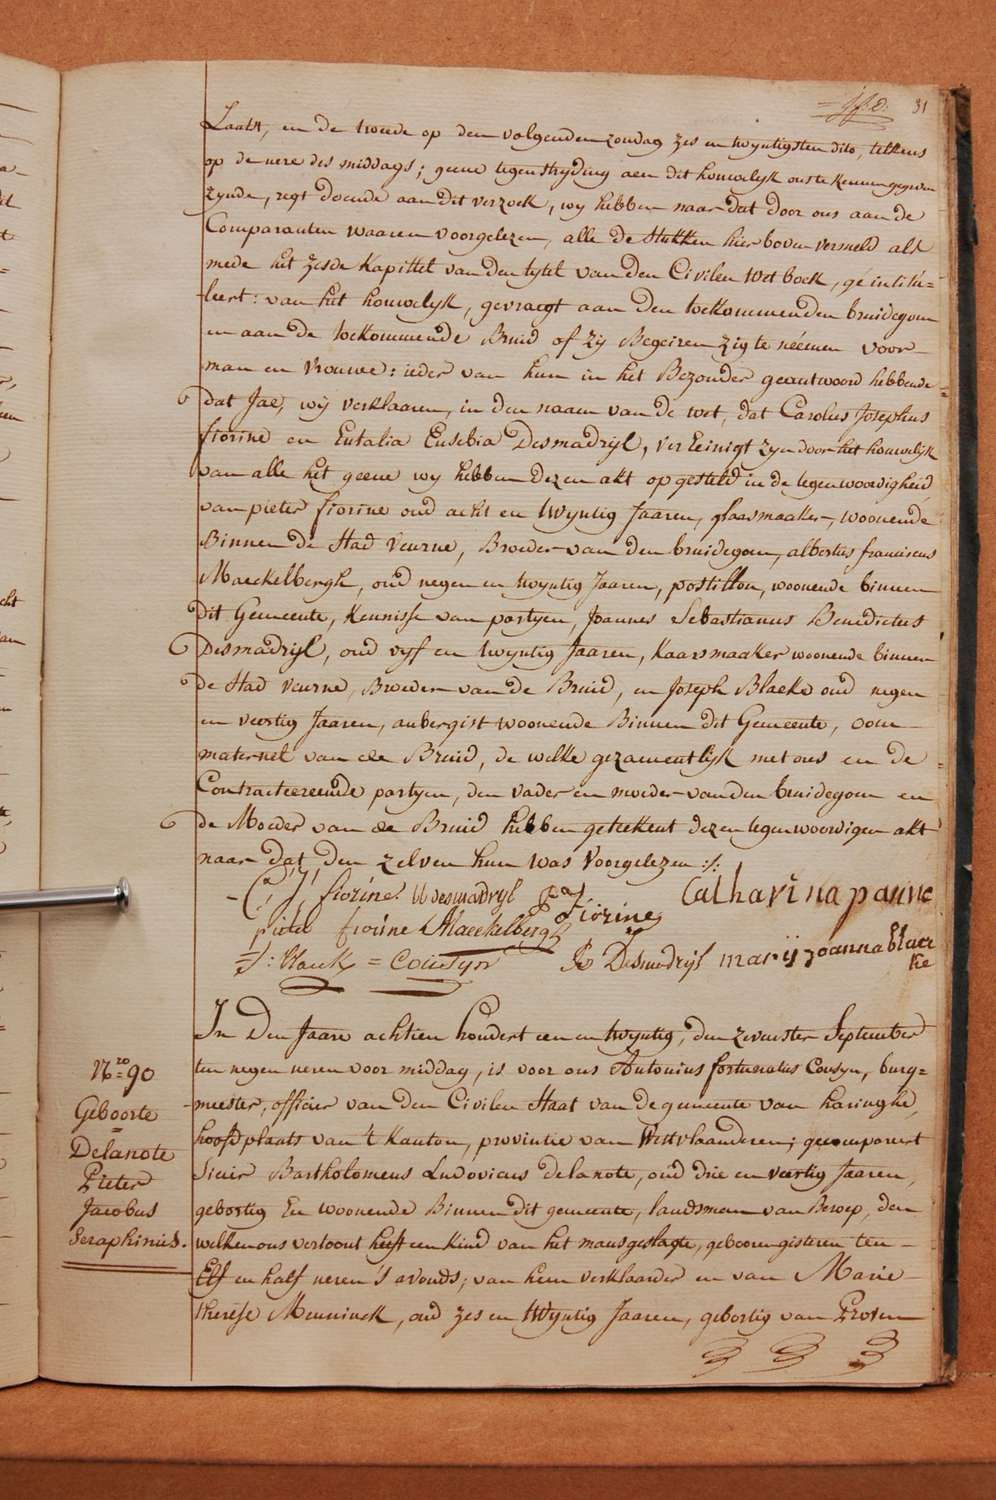 31
Laatst, en de tweede op den volgenden zondag zes en twyntigsten dito, telkens
op de uere des middags; geene tegenstryding aen dit houwelyk ons te kennen gegeven
zynde, regt doende aan dit verzoek, wy hebben naar dat door ons aan de
Comparanten waaren voorgelezen, alle de Stukken hier boven vermeld als
mede het zesde Kapittel van den tytel van den Civilen Wet boek, geintitu=
leert: van het houwelyk, gevraegt aan den toekommenden bruidegom
en aan de toekommende Bruid of zy Begeiren zig te néémen voor
man en Vrouwe: ieder van hun in het Bezonder geantwoord hebbende
dat Jae, wy verklaaren, in den naam van de wet, dat Carolus Josephus
fiorine en Eutalia Eusebia Desmadryl, vereinigt zyn door het houwelyk
van alle het geene wy hebben dezen akt opgesteld in de tegenwoordigheid
van pieter fiorine oud acht en twyntig Jaaren, glaasmaaker, woonende
Binnen de Stad Veurne, Broeder van den bruidegom, albertus franciscus
Maeckelbergh, oud negen en twyntig Jaaren, postillon, woonende binnen
dit Gemeente, Kennisse van partyen, Joannes Sebastianus Benedictus
Desmadryl, oud vyf en twyntig Jaaren, Kaarsmaaker woonende binnen
de Stad Veurne, Broeder van de Bruid, en Joseph Blaeke oud negen
en veertig Jaaren, aubergist woonende Binnen dit Gemeente, oom
maternel van de Bruid, de welke gezamentlyk met ons en de
Contracteerende partyen, den vader en moeder van den bruidegom en
de Moeder van de Bruid hebben geteekent dezen tegenwoordigen akt
naar dat den zelven hun was Voorgelezen :/:
C: J: fiorine. desmadryl Fiorine Catharina panne
pieter fiorine AMaeckelbergh
J: Blaeke = Cousyn Desmadryl marij joanna blaeke
N.ro 90
Geboorte
=
Delanote
Pieter
Jacobus
Seraphinus.
In Den Jaare achtien hondert een en twyntig, den zevensten September
ten negen ueren voor middag, is voor ons Antonius fortunatus Cousyn, burg=
meester, officier van den Civilen Staat van de gemeente van haringhe,
hoofdplaats van 't Kanton, provintie van Westvlaanderen; gecompareert
Sieur Bartholomeus Ludovicus delanote, oud drie en veertig Jaaren,
gebortig En woonende Binnen dit gemeente, landsman van Beroep, den
welken ons vertoont heeft een Kind van het mansgeslagte, gebooren gisteren ten
Elf en half ueren 's avonds; van hem verklaarder en van Marie
therése Menninck, oud zes en twyntig Jaaren, gebortig van Proven